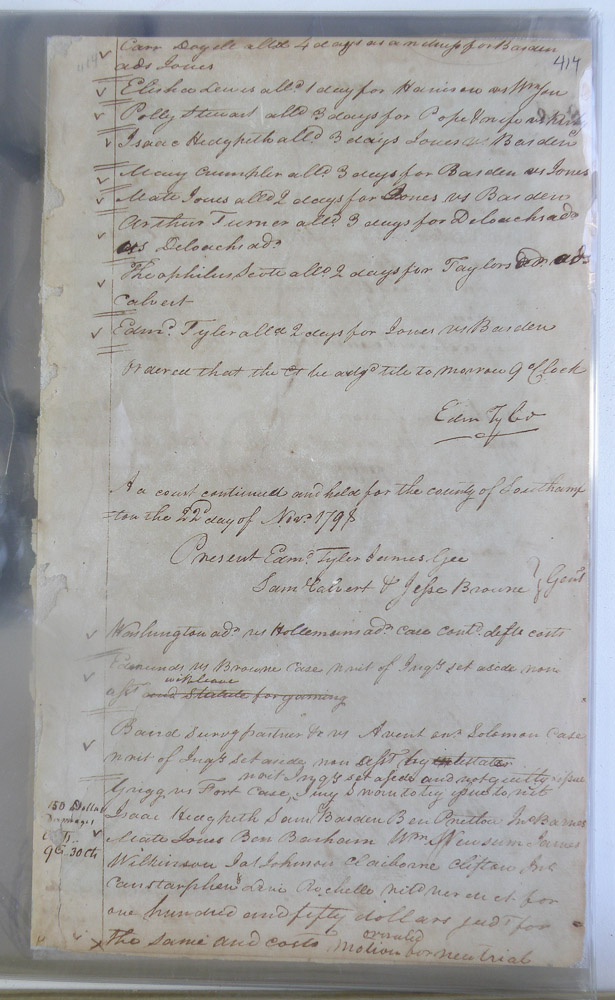 414
Carr Doyele alld 4 days as a witness for Barden
ads Jones
Elisha Lewis alld 1 day for Harrison vs
Polly Stewart alld 3 days for Pope & wife vs
Isaac Hedgpeth alld 3 days Jones vs Barden
Mary Crumpler alld 3 days for Barden vs Jones
Mate Jones alld 2 days for Jones vs Barden
Arthur Turner alld 3 days for Deloachs ado
vs Deloachs ado
Theophilus Scott alld 2 days for Taylors ads
Calvert
Edmd. Tyler alld 2 days for Jones vs Barden
Ordered that the Ct be adjd till to morrow 9 oClock
Edm Tyler
At a court continued and held for the county of Southamp
=ton the 22d day of Novr. 1798
Present Edmd. Tyler James Gee
Saml. Calvert & Jesse Browne } Gent
Washington ado vs Hollemans ado case contd. defts costs
Edmunds vs Browne Case writ of Inqy set aside non
with leave
asst and Statute for gaming
Baird survg partner &c vs Avent exr Solomon Case
writ of Inqy set aside non asst by intestate
writ Inqy set aside and not guilty
Grigg vs Fort Case, Jury sworn to try issue to wit
150 Dollar
Damages
9C. 30 Ct
Isaac Hedgpeth Saml Barden Ben Pretlow Jno Barnes
Mate Jones Ben Barham Wm. Newsum James
Wilkinson Jas Johnson Claiborne Clifton Jno
Vanstarphen & Levi Rochelle retd verdict for
one hundred and fifty dollars judt for
the same and costs overruled
Motion for new trial